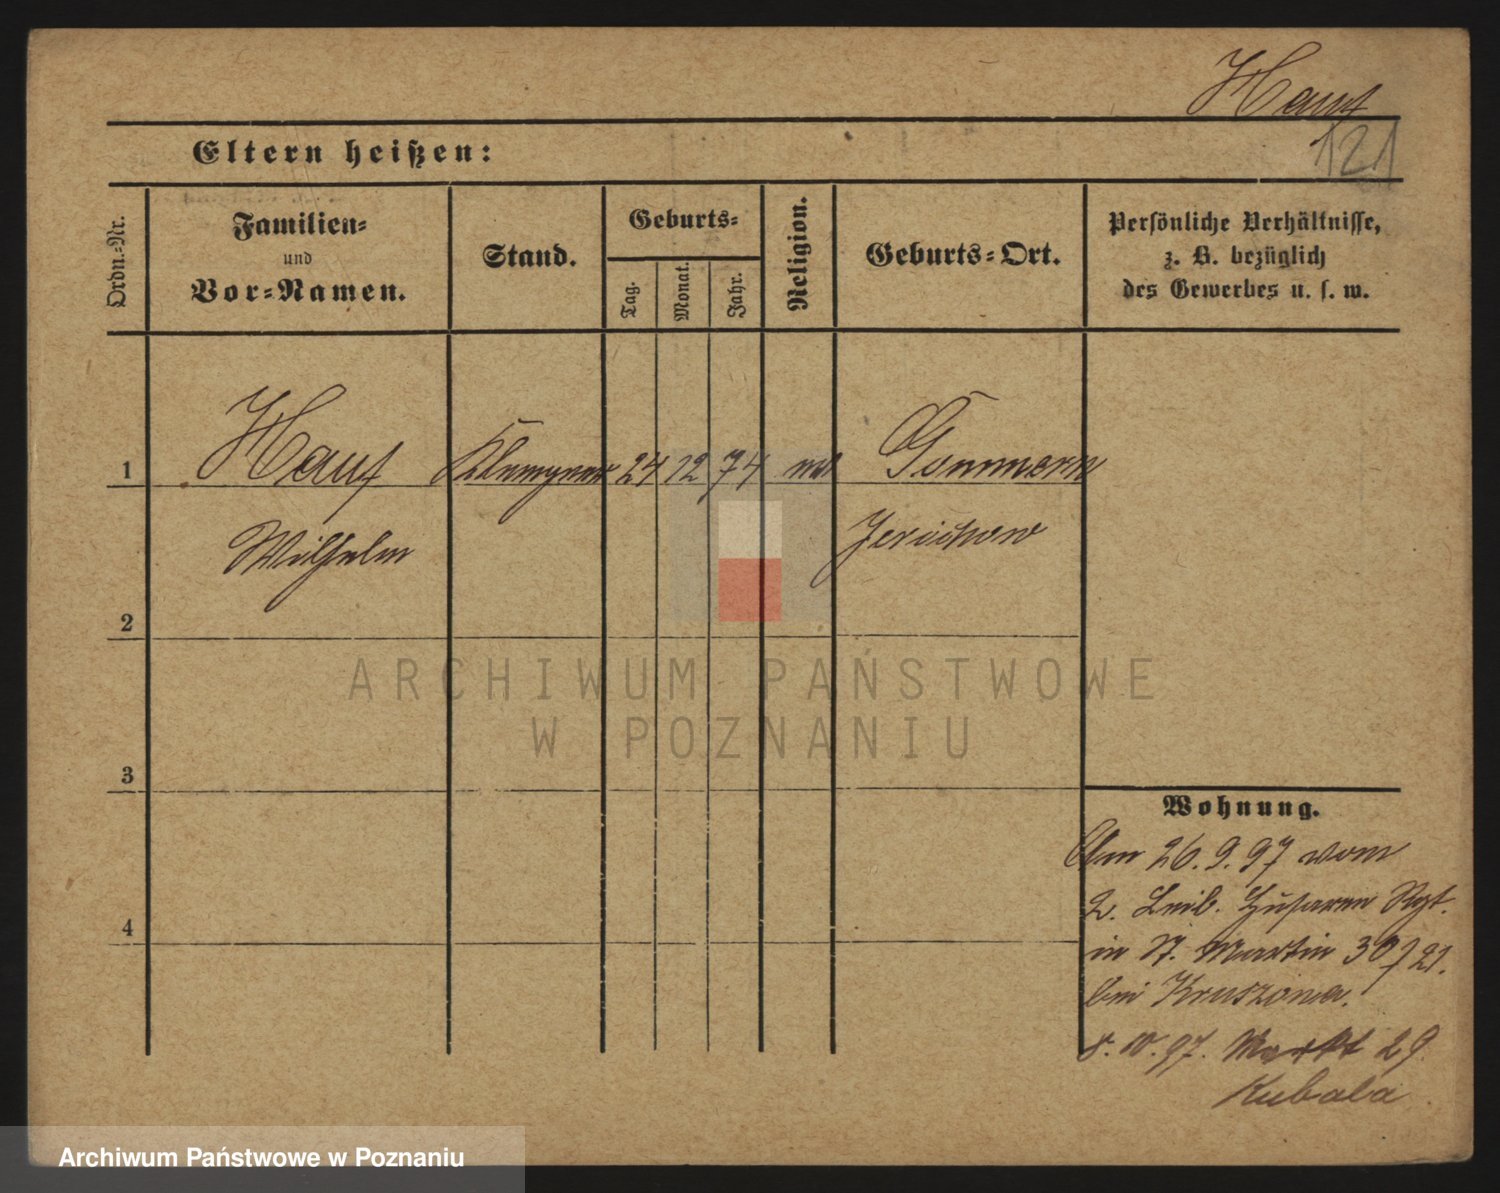 Hauf
121
Eltern heißen:
Ordn.-Nr.
Familien-
und
Vor-Namen.
Stand.
Geburts-
Tag.
Monat.
Jahr.
Religion.
Geburts-Ort.
Persönliche Verhältnisse,
z. B. bezüglich
des Gewerbes u. s. w.
1
Hauf
Klempner
24
12
74
Gommern
Wilhelm
Jerichow
2
ARCHIWUM PAŃSTWOWE
W POZNANIU
3
4
Wohnung.
26.9.97 vom
2. Leib. Husaren Rgt.
in St. Martin 30/21.
bei
8.10.97. Markt 29
Kubala
Archiwum Państwowe w Poznaniu